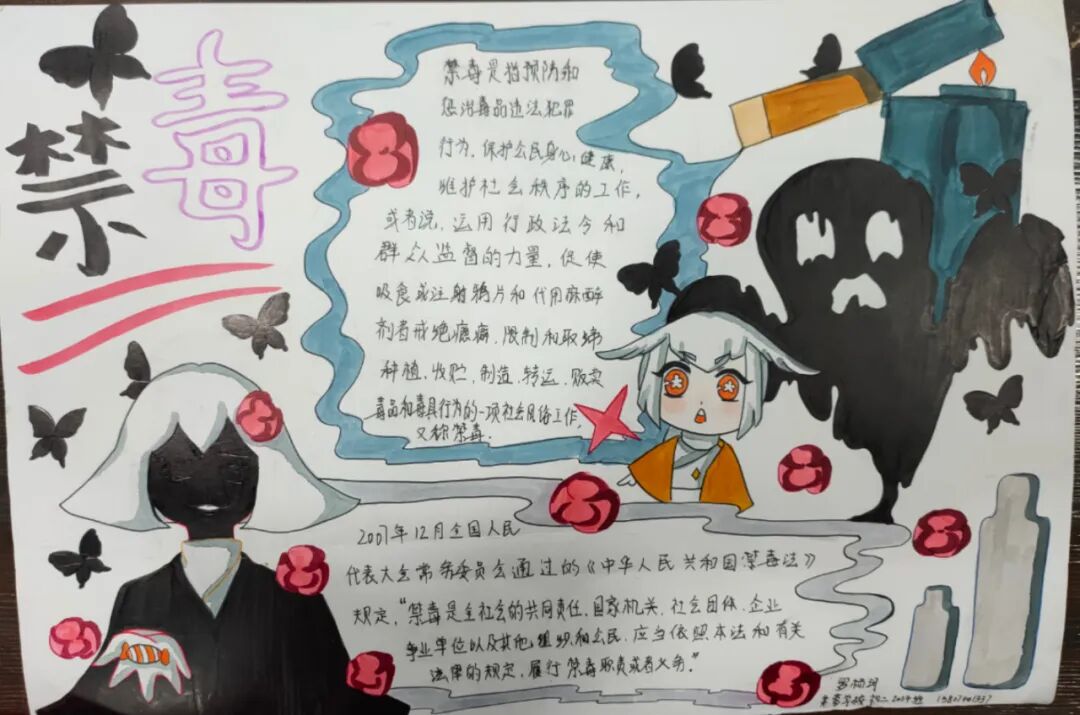 禁毒
禁毒是指预防和
惩治毒品违法犯罪
行为，保护公民身心健康，
维护社会秩序的工作，
或者说，运用行政法令和
群众监督的力量，促使
吸食或注射鸦片和代用麻醉
剂者戒绝瘾癖，限制和取缔
种植，收贮，制造，转运，贩卖
毒品和毒具行为的一项社会风俗工作，
又称禁毒．
2007年12月全国人民
代表大会常务委员会通过的《中华人民共和国禁毒法》
规定，“禁毒是全社会的共同责任．国家机关、社会团体、企业
事业单位以及其他组织和公民，应当依照本法和有关
法律的规定，履行禁毒职责或者义务．”